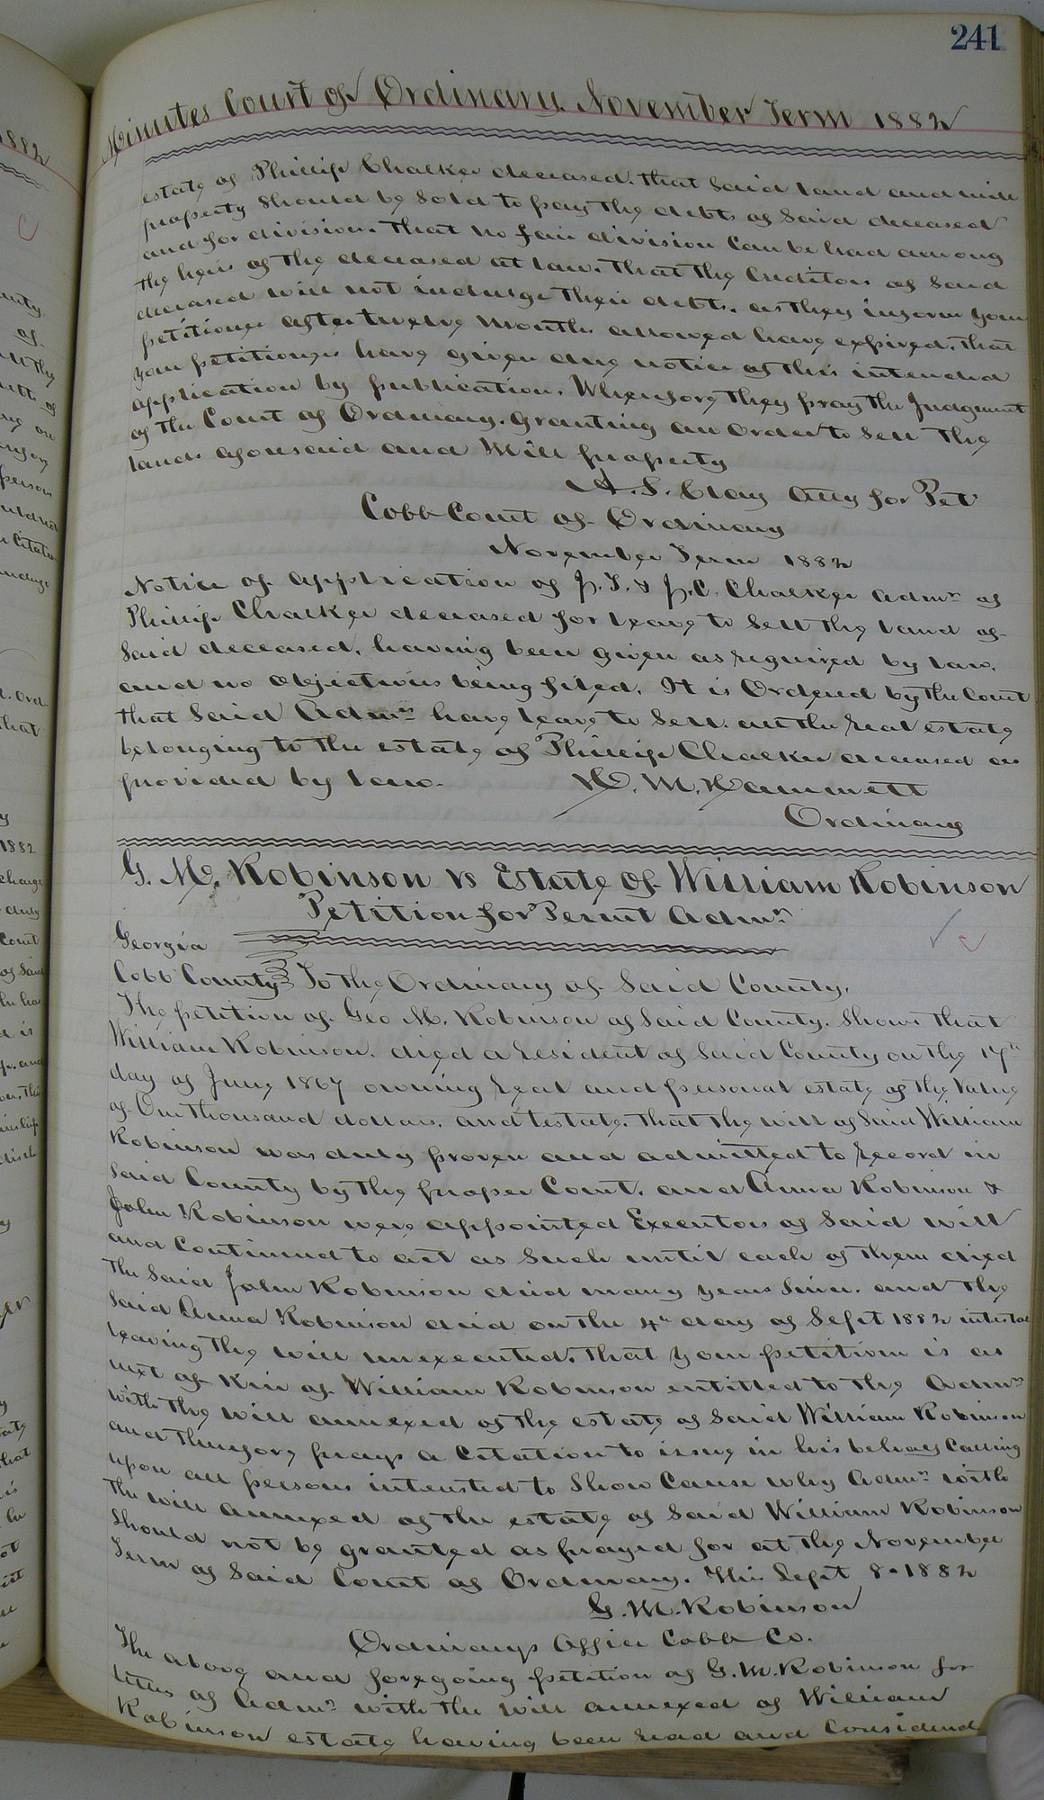 241
Minutes Court of Ordinary November Term 1882
estate of Phillip Chalker deceased. That Said land and mill
property Should be Sold to pay the debts of Said deceased
and for division. That no fair division Can be had among
the heirs of the deceased at law. That the Creditors of Said
deceased will not indulge their debts. as they inform your
petitioners after twelve Months allowed have expired. That
your petitioners have given due notice of this intended
application by publication. Wherefore they pray the Judgment
of the Court of Ordinary. Granting an Order to Sell the
lands aforesaid and Mill property
A. S. Clay Atty for Pet
Cobb Court of Ordinary
November Term 1882
Notice of application of J. T. & J. C. Chalker Admrs of
Phillip Chalker deceased for leave to Sell the land of
Said deceased, having been given as required by law.
and no objections being filed. It is Ordered by the Court
that Said Admrs have leave to Sell. all the real estate
belonging to the estate of Phillip Chalker deceased as
provided by law. H. M. Hammett
Ordinary
G. M. Robinson vs Estate of William Robinson
Petition for Permt Admr
Georgia
Cobb County To the Ordinary of Said County.
The petition of Geo M. Robinson of Said County. Shows that
William Robinson. died a resident of Said County on the 17th
day of June 1867 owning real and personal estate of the Value
of One thousand dollars. and testate. That the will of Said William
Robinson was duly proven and admitted to record in
Said County by the proper Court. and Anna Robinson &
John Robinson were appointed Executors of Said will
and Continued to act as Such until each of them died
The Said John Robinson died many years Since. and the
Said Anna Robinson died on the 4th day of Sept 1882 intestate
leaving the will unexecuted. That your petitioner is as
next of Kin of William Robinson entitled to the Admr
with the will annexed of the estate of Said William Robinson
and therefore prays a Citation to issue in his behalf Calling
upon all persons interested to Show Cause why Admr with
the will annexed of the estate of Said William Robinson
Should not be granted as prayed for at the November
Term of Said Court of Ordinary. This Sept 8. 1882
G. M. Robinson
Ordinarys Office Cobb Co.
The above and foregoing petition of G. M. Robinson for
letters of Admr with the will annexed of William
Robinson estate having been read and Considered